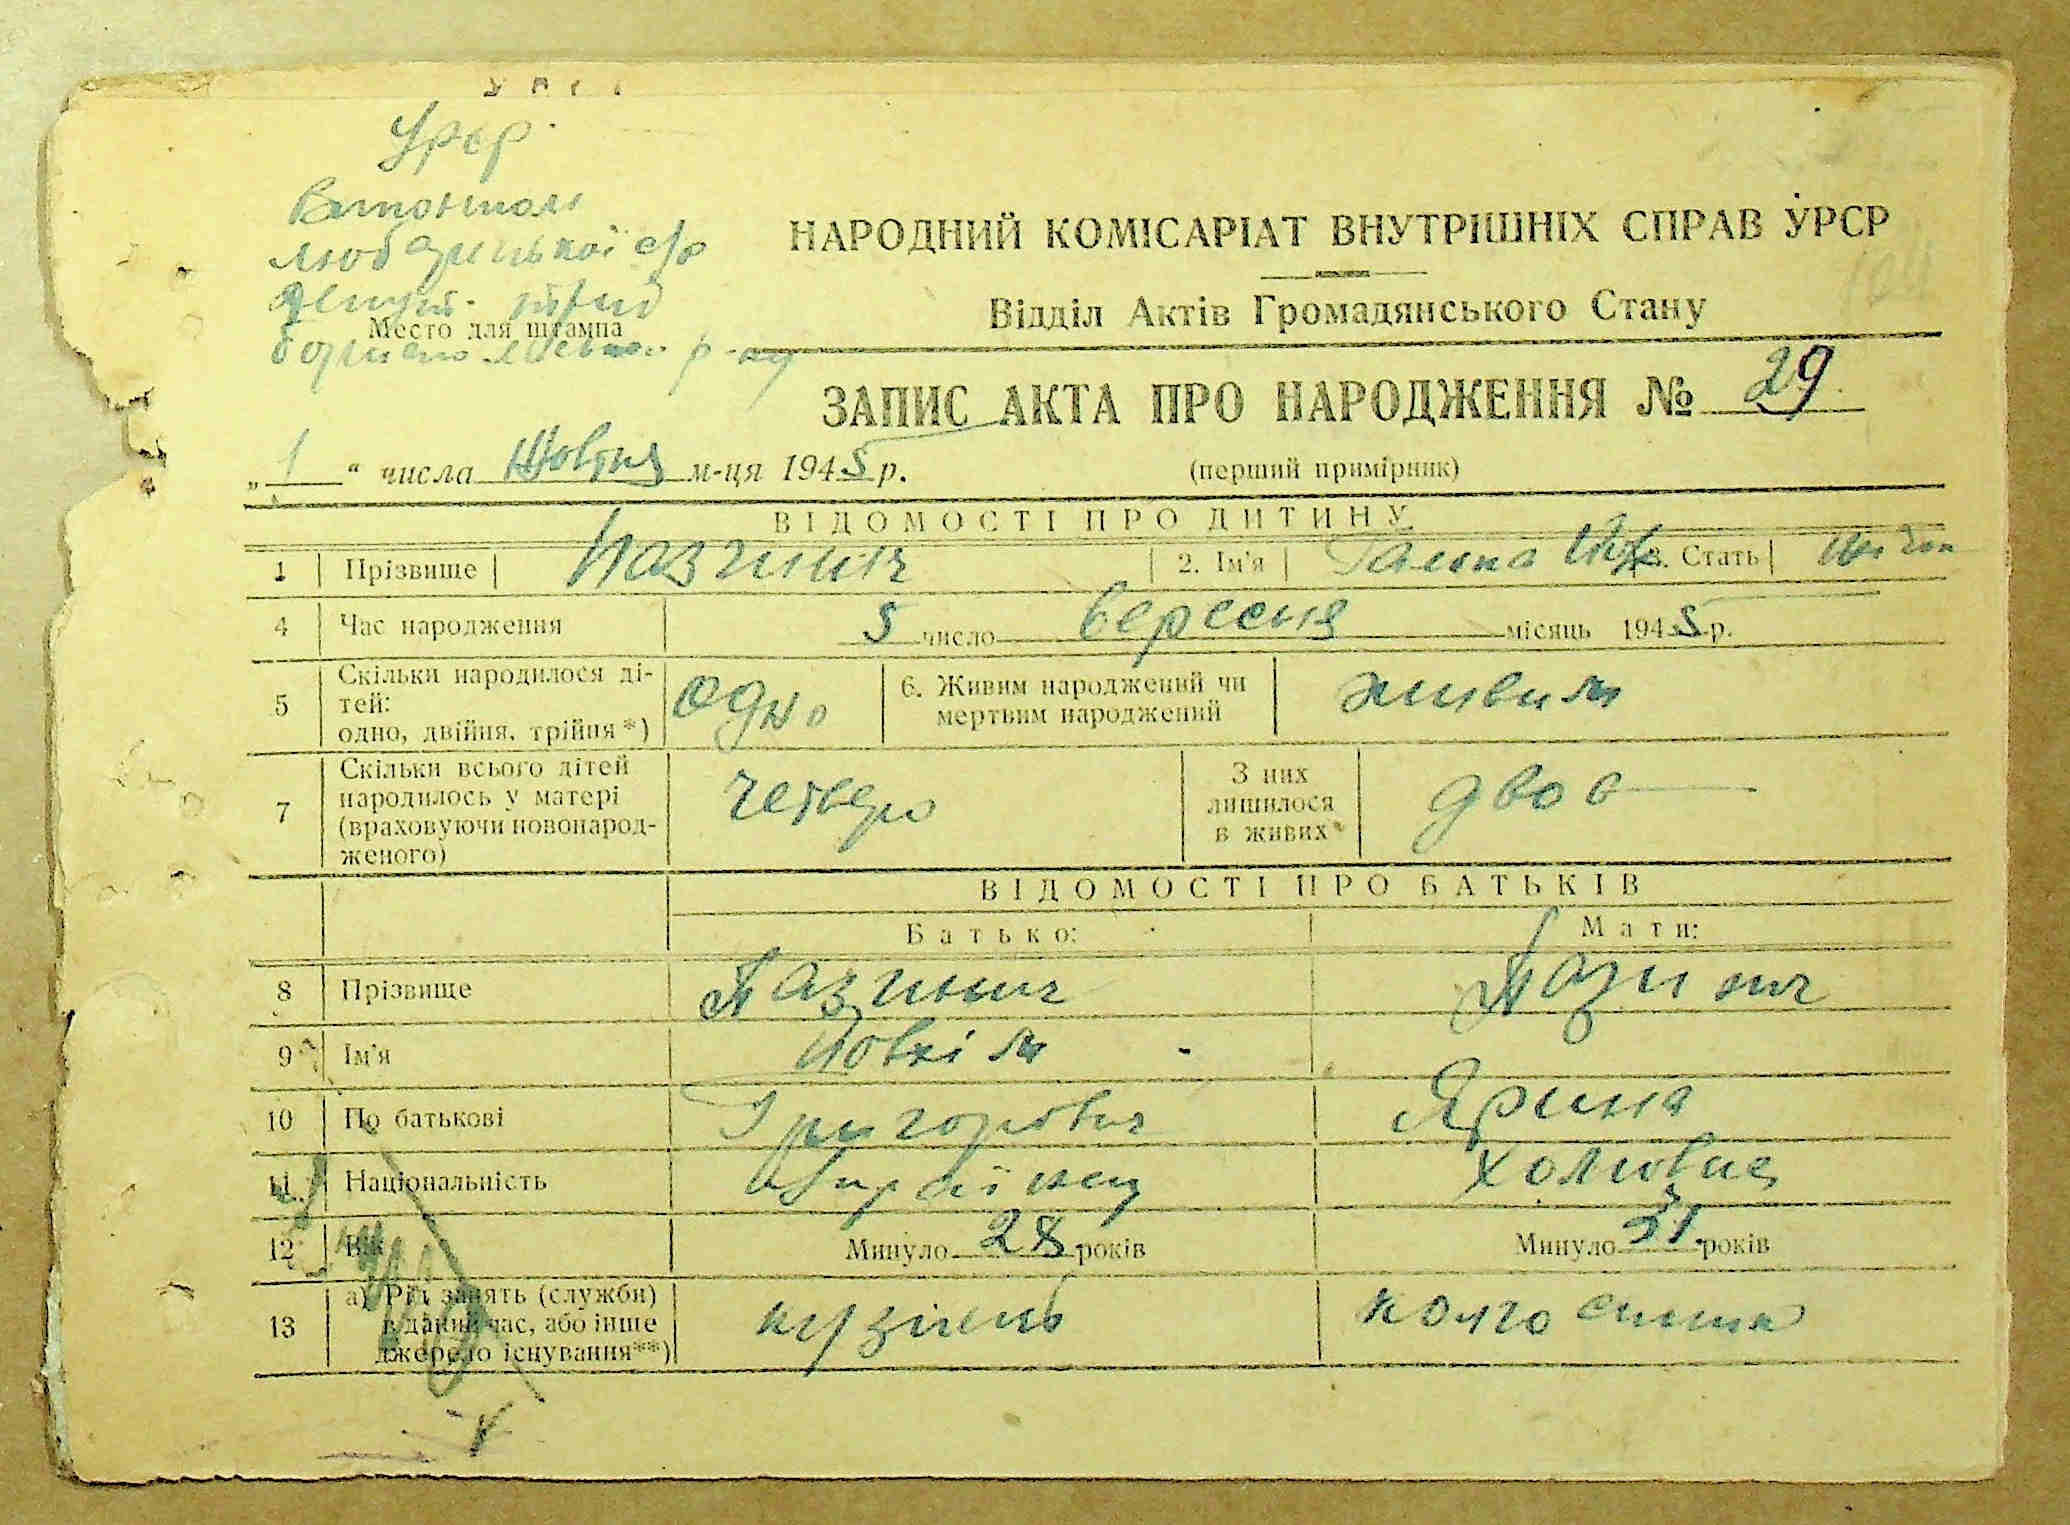 УРСР
Виконком
Любарецької с/р
Депут. труд
Бориспольськ. р-ну
Место для штампа
НАРОДНИЙ КОМІСАРІАТ ВНУТРІШНІХ СПРАВ УРСР
Відділ Актів Громадянського Стану
ЗАПИС АКТА ПРО НАРОДЖЕННЯ № 29
„1“ числа Жовтня м-ця 1945 р.
(перший примірник)
ВІДОМОСТІ ПРО ДИТИНУ
1 Прізвище Пазинич 2. Ім'я Галина 3. Стать
4 Час народження 5 число вересня місяць 1945 р.
5 Скільки народилося ді-
тей:
одно, двійня, трійня *) одно 6. Живим народжений чи
мертвим народжений живим
7 Скільки всього дітей
народилось у матері
(враховуючи новонарод-
женого) четверо З них
лишилося
в живих двоє
ВІДОМОСТІ ПРО БАТЬКІВ
Батько: Мати:
8 Прізвище Пазинич Пазинич
9 Ім'я Йовхім
10 По батькові Григорович Ярина
11 Національність Українец
12 Вік Минуло 28 років Минуло 31 років
13 а) Рід занять (служби)
в даний час, або інше
джерело існування**) колгоспниця